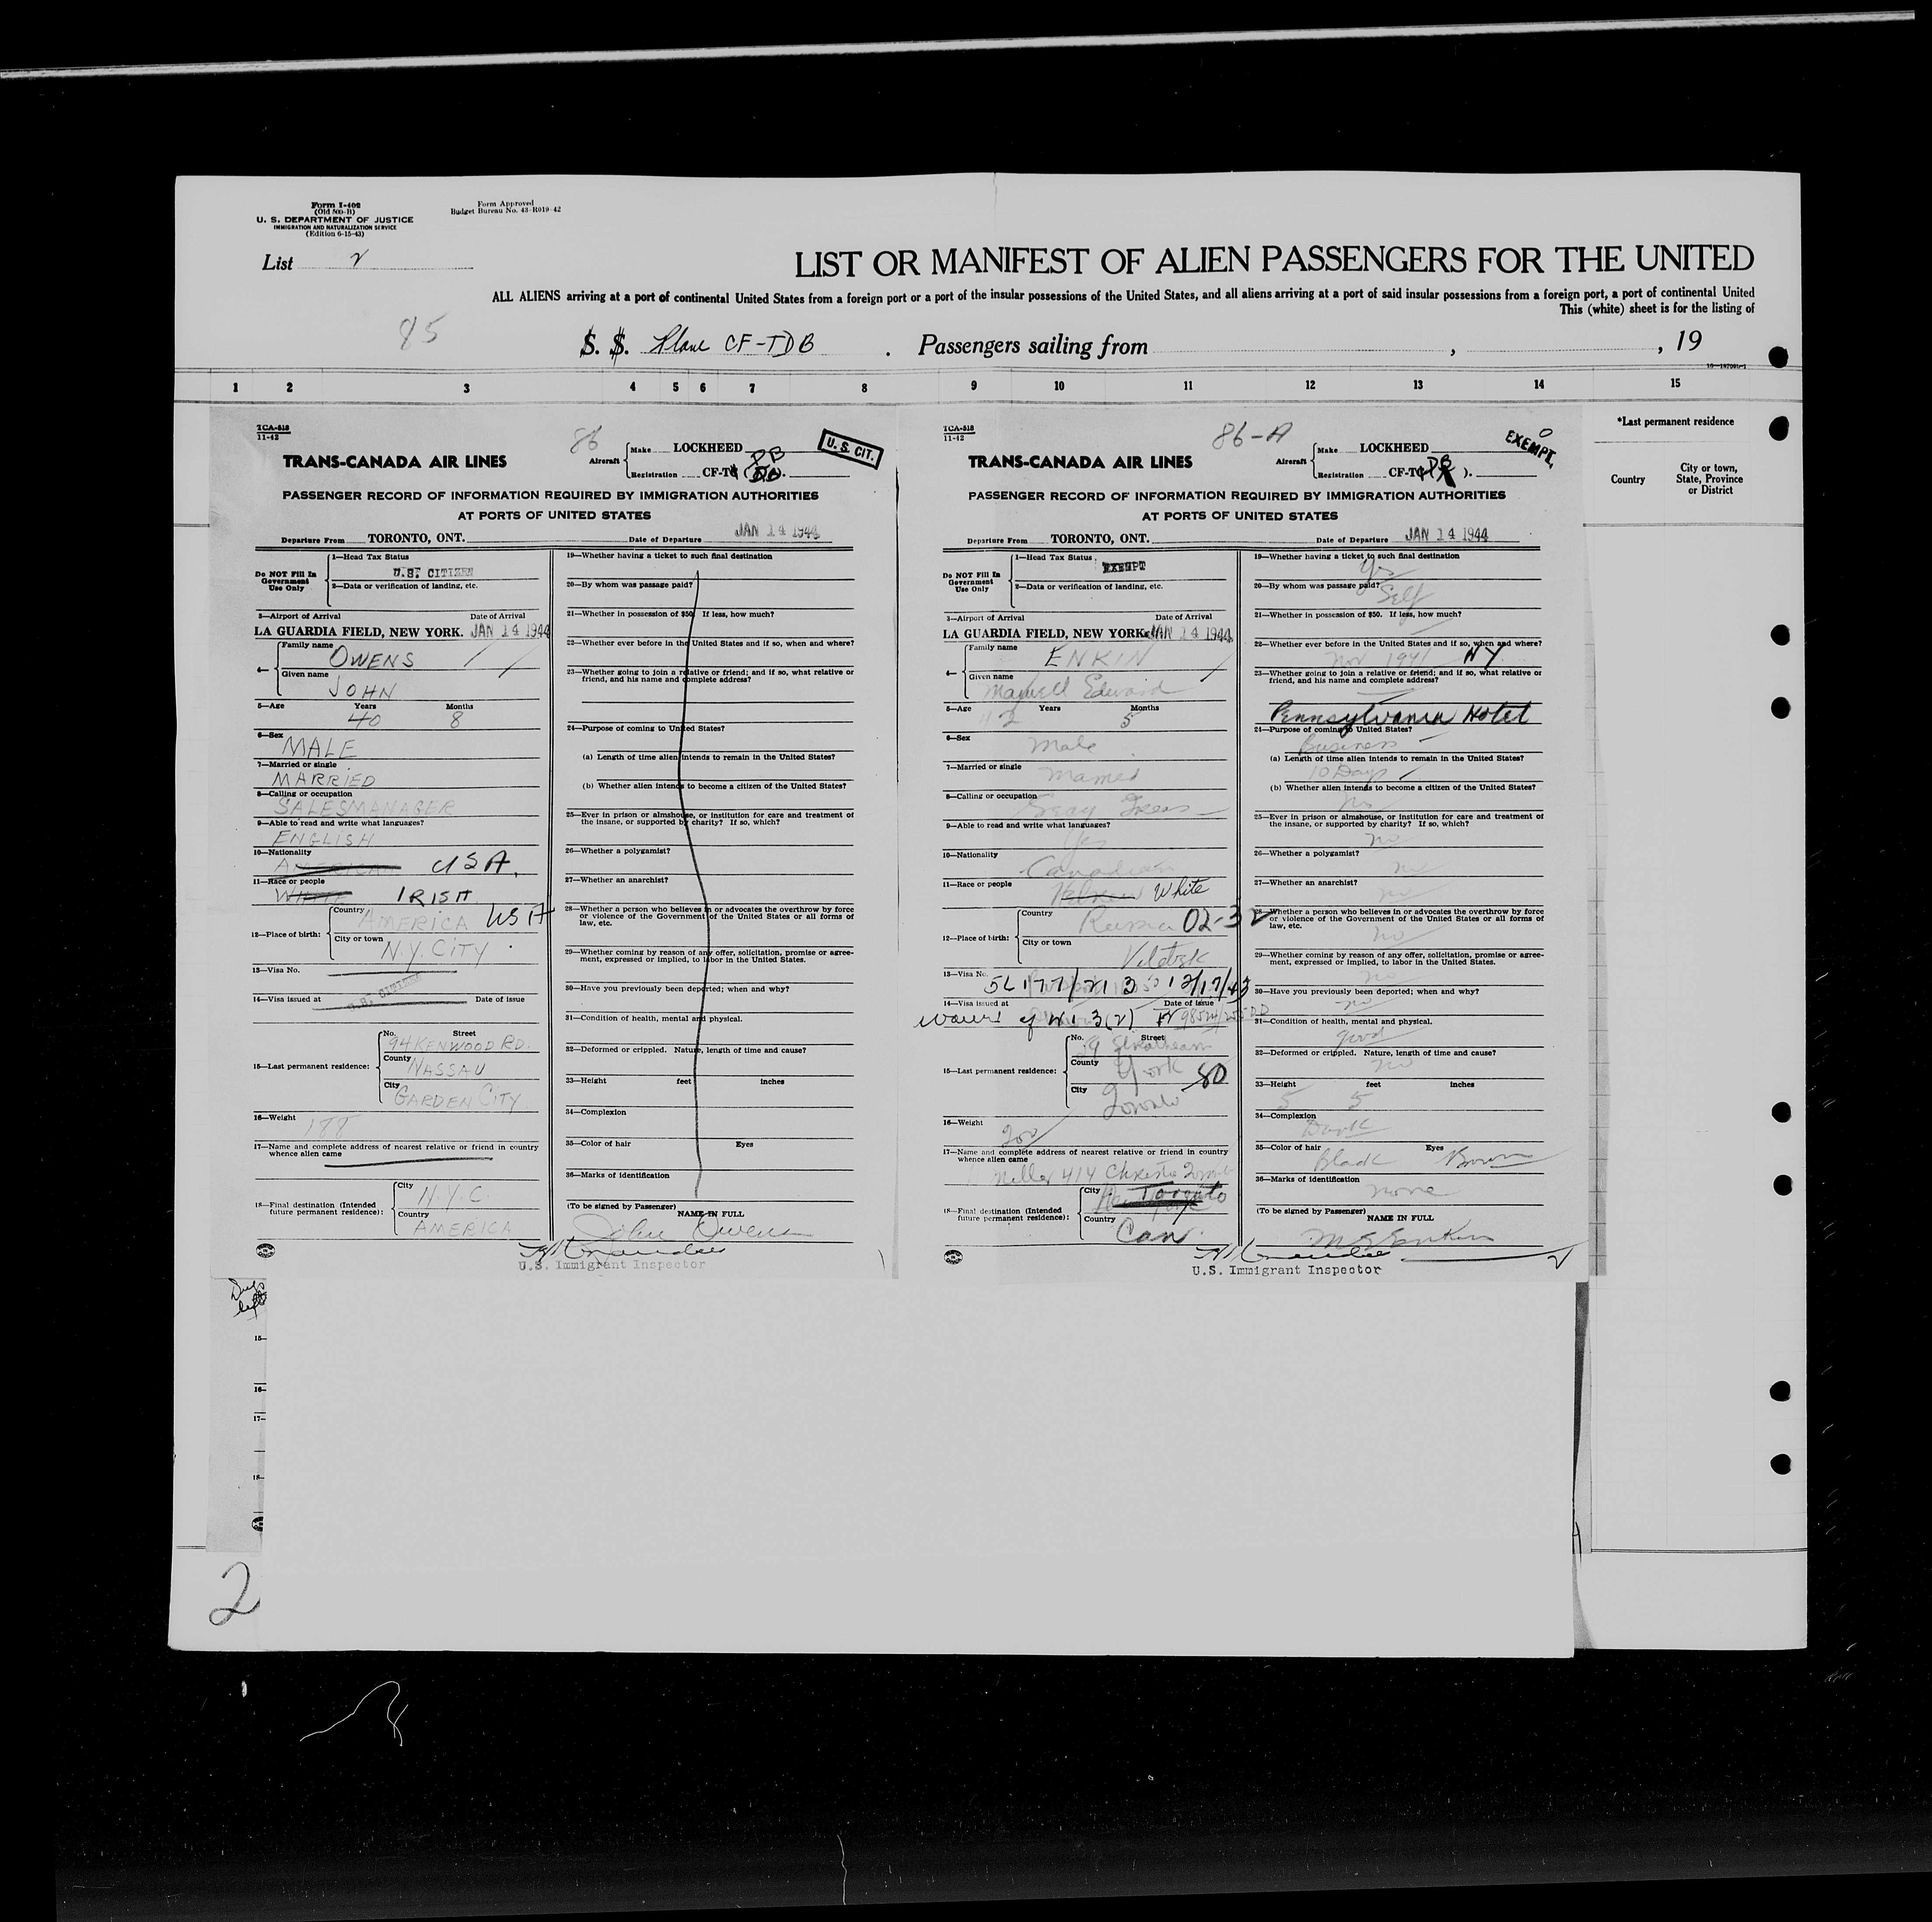 Form I-402
(Old 500-B)
U. S. DEPARTMENT OF JUSTICE
IMMIGRATION AND NATURALIZATION SERVICE
(Edition 6-15-43)
Form Approved
Budget Bureau No. 43-R019-42
List 2
LIST OR MANIFEST OF ALIEN PASSENGERS FOR THE UNITED
ALL ALIENS arriving at a port of continental United States from a foreign port or a port of the insular possessions of the United States, and all aliens arriving at a port of said insular possessions from a foreign port, a port of continental United
This (white) sheet is for the listing of
85
S. S. Plane CF-TDB . Passengers sailing from , , 19
1 2 3 4 5 6 7 8 9 10 11 12 13 14 15
*Last permanent residence
Country
City or town,
State, Province
or District
TCA-518
11-42
86
U. S. CIT.
TRANS-CANADA AIR LINES
Aircraft
Make LOCKHEED
Registration CF-T DB
PASSENGER RECORD OF INFORMATION REQUIRED BY IMMIGRATION AUTHORITIES
AT PORTS OF UNITED STATES
Departure From TORONTO, ONT. Date of Departure JAN 14 1944
Do NOT Fill In
Government
Use Only
1—Head Tax Status
U.S. CITIZEN
2—Data or verification of landing, etc.
3—Airport of Arrival Date of Arrival
LA GUARDIA FIELD, NEW YORK. JAN 14 1944
4—
Family name
OWENS
Given name
JOHN
5—Age Years Months
40 8
6—Sex
MALE
7—Married or single
MARRIED
8—Calling or occupation
SALESMANAGER
9—Able to read and write what languages?
ENGLISH
10—Nationality
AMERICAN USA.
11—Race or people
WHITE IRISH
12—Place of birth:
Country
AMERICA USA
City or town
N.Y. CITY
13—Visa No.
U.S. CITIZEN
14—Visa issued at Date of issue
15—Last permanent residence:
No. Street
94 KENWOOD RD.
County
NASSAU
City
GARDEN CITY
16—Weight
17—Name and complete address of nearest relative or friend in country
whence alien came
18—Final destination (Intended
future permanent residence):
City
N.Y.C.
Country
AMERICA
19—Whether having a ticket to such final destination
20—By whom was passage paid?
21—Whether in possession of $50. If less, how much?
22—Whether ever before in the United States and if so, when and where?
23—Whether going to join a relative or friend; and if so, what relative or
friend, and his name and complete address?
24—Purpose of coming to United States?
(a) Length of time alien intends to remain in the United States?
(b) Whether alien intends to become a citizen of the United States?
25—Ever in prison or almshouse, or institution for care and treatment of
the insane, or supported by charity? If so, which?
26—Whether a polygamist?
27—Whether an anarchist?
28—Whether a person who believes in or advocates the overthrow by force
or violence of the Government of the United States or all forms of
law, etc.
29—Whether coming by reason of any offer, solicitation, promise or agree-
ment, expressed or implied, to labor in the United States.
30—Have you previously been deported; when and why?
31—Condition of health, mental and physical.
32—Deformed or crippled. Nature, length of time and cause?
33—Height feet inches
34—Complexion
35—Color of hair Eyes
36—Marks of identification
(To be signed by Passenger)
NAME IN FULL
John Owens
U.S. Immigrant Inspector
TCA-518
11-42
86-A
EXEMPT.
TRANS-CANADA AIR LINES
Aircraft
Make LOCKHEED
Registration CF-T DB ).
PASSENGER RECORD OF INFORMATION REQUIRED BY IMMIGRATION AUTHORITIES
AT PORTS OF UNITED STATES
Departure From TORONTO, ONT. Date of Departure JAN 14 1944
Do NOT Fill In
Government
Use Only
1—Head Tax Status
EXEMPT
2—Data or verification of landing, etc.
3—Airport of Arrival Date of Arrival
LA GUARDIA FIELD, NEW YORK. JAN 14 1944
4—
Family name
ENKIN
Given name
Maxwell Edward
5—Age Years Months
42 5
6—Sex
Male
7—Married or single
Married
8—Calling or occupation
9—Able to read and write what languages?
Yes
10—Nationality
Canadian
11—Race or people
Hebrew White
12—Place of birth:
Country
Russia 02-32
City or town
13—Visa No.
12/17/43
14—Visa issued at Date of issue
waiver of 3(2)
15—Last permanent residence:
No. Street
County
York 80
City
Toronto
16—Weight
200
17—Name and complete address of nearest relative or friend in country
whence alien came
414 Christie
18—Final destination (Intended
future permanent residence):
City
Toronto
Country
Can.
19—Whether having a ticket to such final destination
Yes
20—By whom was passage paid?
Self
21—Whether in possession of $50. If less, how much?
22—Whether ever before in the United States and if so, when and where?
Nov 1941 NY.
23—Whether going to join a relative or friend; and if so, what relative or
friend, and his name and complete address?
Pennsylvania Hotel
24—Purpose of coming to United States?
Business
(a) Length of time alien intends to remain in the United States?
10 Days
(b) Whether alien intends to become a citizen of the United States?
no
25—Ever in prison or almshouse, or institution for care and treatment of
the insane, or supported by charity? If so, which?
no
26—Whether a polygamist?
no
27—Whether an anarchist?
no
28—Whether a person who believes in or advocates the overthrow by force
or violence of the Government of the United States or all forms of
law, etc.
no
29—Whether coming by reason of any offer, solicitation, promise or agree-
ment, expressed or implied, to labor in the United States.
no
30—Have you previously been deported; when and why?
no
31—Condition of health, mental and physical.
good
32—Deformed or crippled. Nature, length of time and cause?
no
33—Height feet inches
5 5
34—Complexion
Dark
35—Color of hair Eyes
Black Brown
36—Marks of identification
none
(To be signed by Passenger)
NAME IN FULL
M E Enkin
U.S. Immigrant Inspector
15—
16—
17—
18—
2